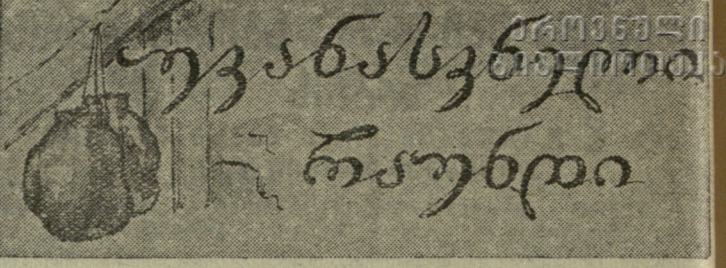 ეროვნული
ბიბლიოთეკა
უკანასკნელი
რაუნდი